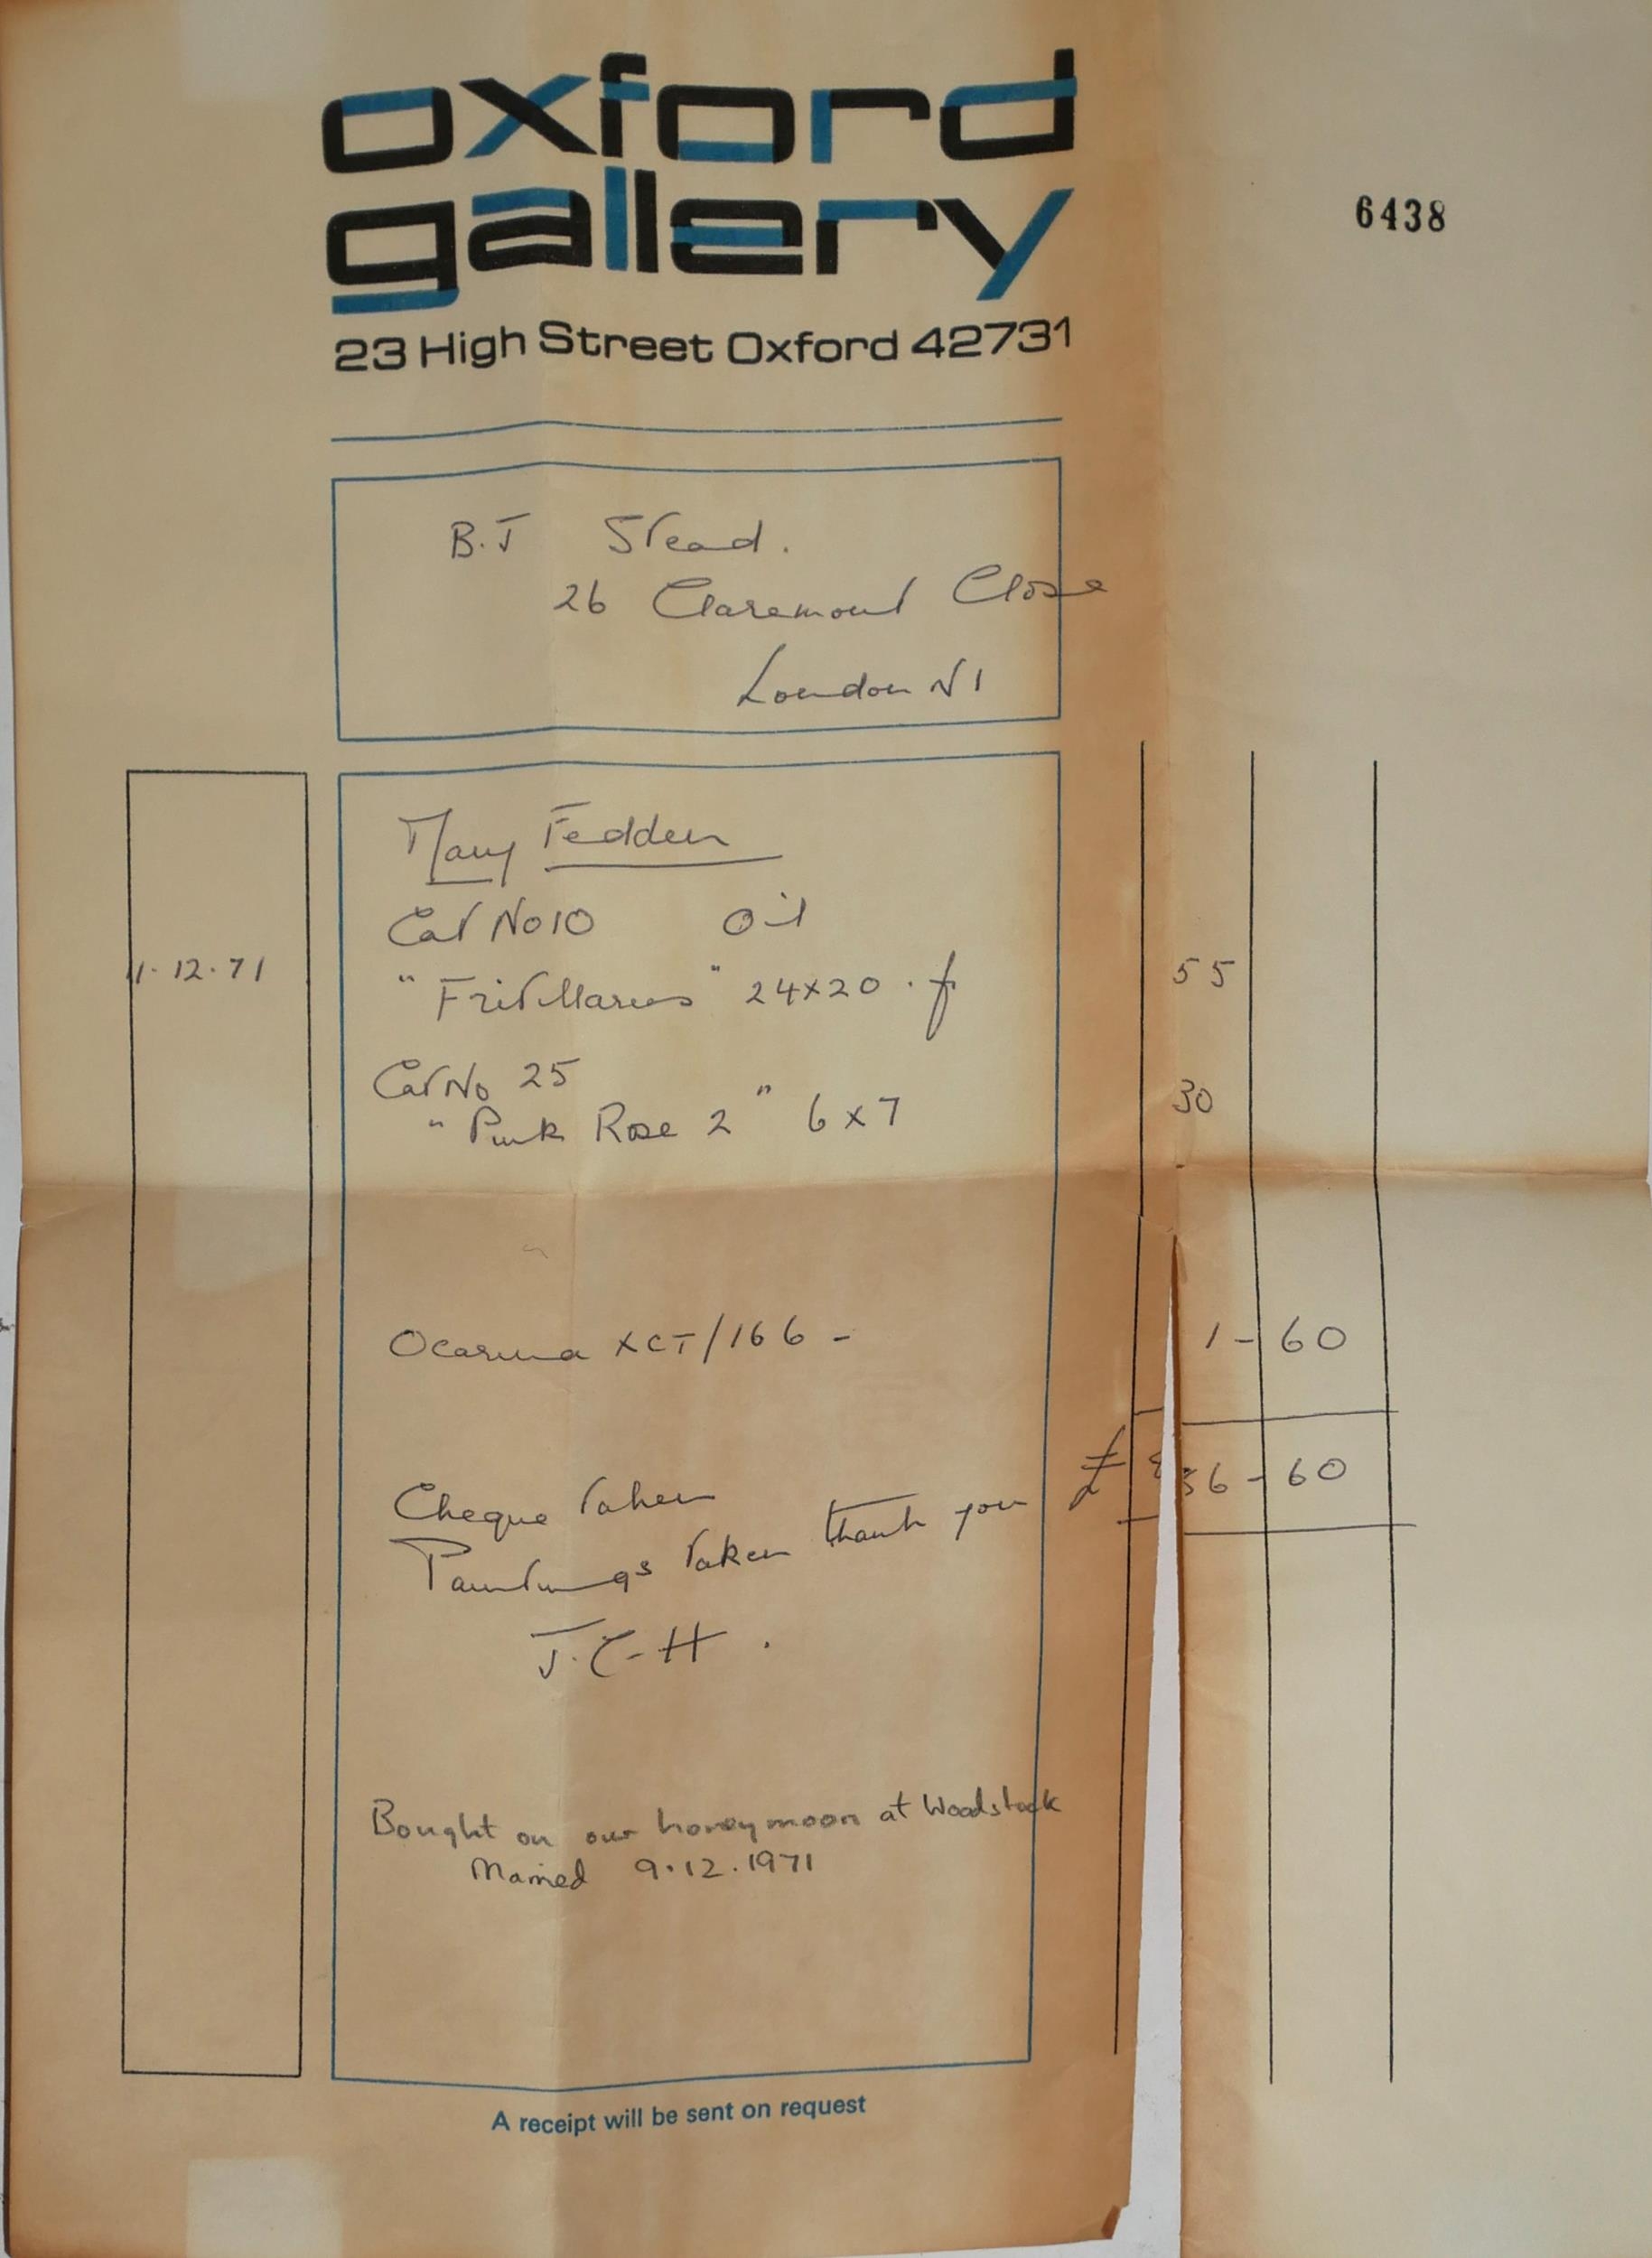 oxford
gallery
6438
23 High Street Oxford 42731
B.J Stead.
26 Claremont Close
London N1
Mary Fedden
Cat No 10 Oil
11.12.71 "Fritillaries" 24x20.f 55
Cat No 25
"Pink Rose 2" 6x7 30
Ocarina XCT/166 - 1-60
£ 86-60
Cheque taken
Paintings taken thank you
J.C-H.
Bought on our honeymoon at Woodstock
Married 9.12.1971
A receipt will be sent on request